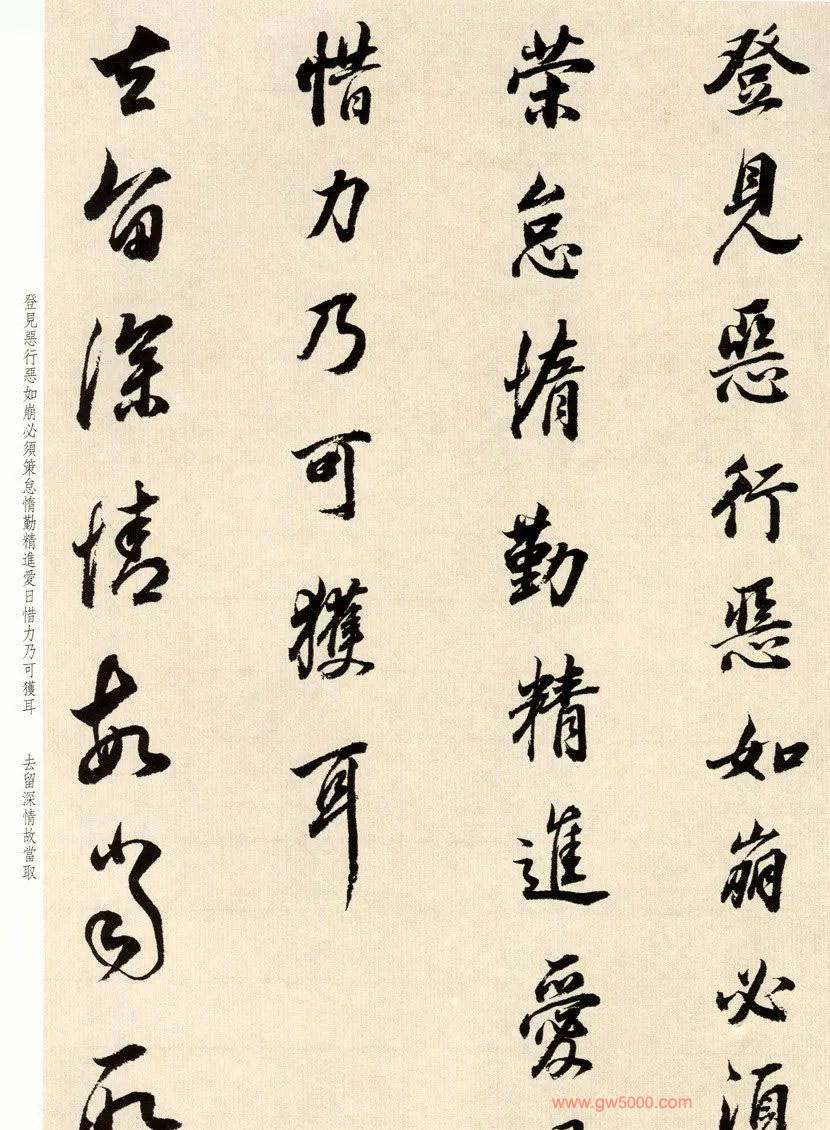 登見惡行惡如崩必須
策怠惰勤精進愛
惜力乃可獲耳
去留深情故當取
登見惡行惡如崩必須策怠惰勤精進愛日惜力乃可獲耳 去留深情故當取
www.gw5000.com